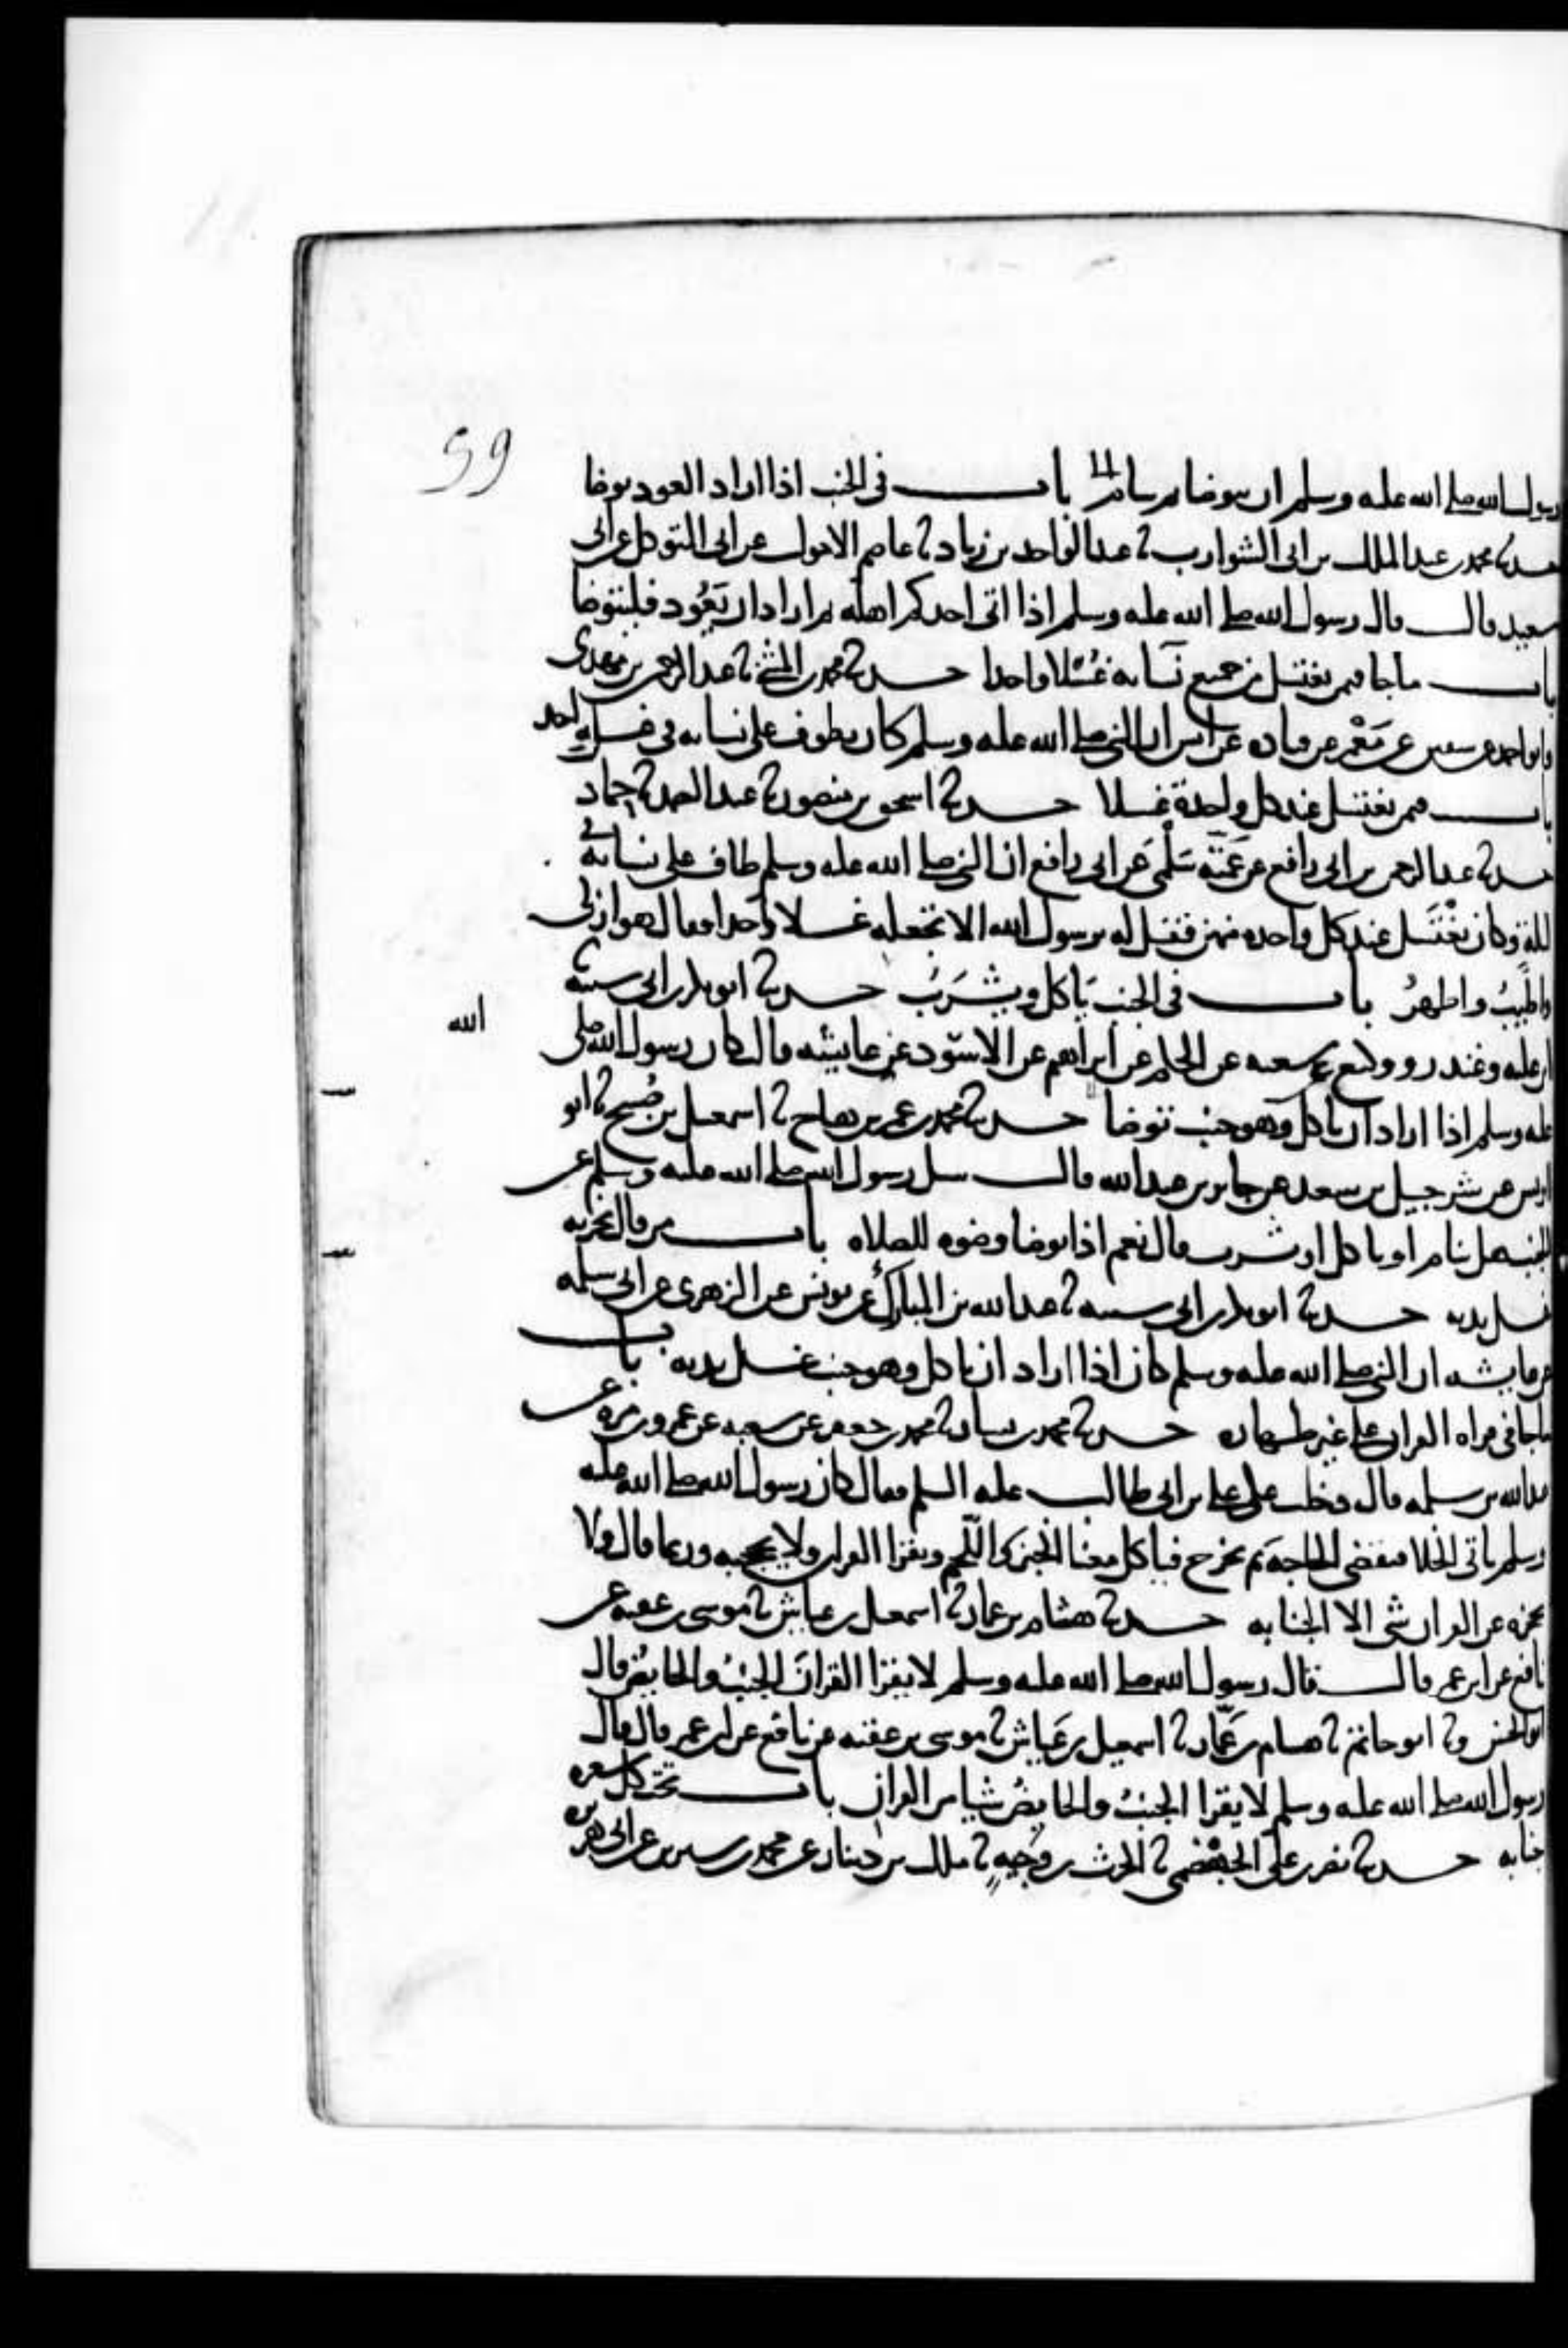 59
رسول الله صلى الله عليه وسلم ان يتوضا ثم ينام باب في الجنب اذا اراد العود توضا
حدثنا محمد بن عبد الملك بن ابى الشوارب ثنا عبد الواحد بن زياد ثنا عاصم الاحول عن ابى المتوكل عن ابى
سعيد قال قال رسول الله صلى الله عليه وسلم اذا اتى احدكم اهله ثم اراد ان يَعُود فليتوضا
باب ما جا فيمن يغتسل من جميع نسايه غُسْلا واحدا حدثنا محمد بن المثنى ثنا عبد الرحمن بن مهدى
وابو احمد عن سفين عن مَعْمر عن قتاده عن انس ان النبي صلى الله عليه وسلم كان يطوف على نسايه في غسل واحد
باب فيمن يغتسل عند كل واحدة غسلا حدثنا اسحق بن منصور ثنا عبد الصمد ثنا حماد
حدثنا عبد الرحمن بن ابى رافع عن عَمَّته سَلْمَى عن ابى رافع ان النبي صلى الله عليه وسلم طاف على نسايه في
ليلةٍ وكان يَغْتَسل عند كل واحده منهن فقيل له يرسول الله الا تجعله غسلا واحدا فقال هو ازكى
واطيبُ واطهرُ باب في الجنب يَاكل ويشرَبُ حدثنا ابو بكر بن ابى شيبه ثنا
ابن عليه وغندر ووكيع عن شعبه عن الحكم عن ابراهيم عن الاسود عن عايشه قالت كان رسول الله صلى
الله
عليه وسلم اذا اراد ان ياكل وهو جنب توضا حدثنا محمد بن عمر بن هياج ثنا اسمعيل بن صُبيح ثنا ابو
اويس عن شرحبيل بن سعد عن جابر بن عبد الله قال سيل رسول الله صلى الله عليه وسلم عن
الجنب هل ينام او ياكل او يشرب قال نعم اذا توضا وضوه للصلاه باب من قال يجزيه
غسل يديه حدثنا ابو بكر بن ابى شيبه ثنا عبد الله بن المبارك عن يونس عن الزهرى عن ابى سلمه
عن عايشه ان النبي صلى الله عليه وسلم كان اذا اراد ان ياكل وهو جنب غسل يديه باب
ما جا في قراه القران على غير طهاره حدثنا محمد بن بشار ثنا محمد بن جعفر عن شعبه عن عمرو بن مره عن
عبد الله بن سلمه قال دخلت على على بن ابى طالب عليه السلم فقال كان رسول الله صلى الله عليه
وسلم ياتى الخلا فيقضى الحاجه ثم يخرج فياكل معنا الخبز واللحم ويقرا القران ولا يحجبه وربما قال ولا
يحجزه عن القران شى الا الجنابه حدثنا هشام بن عمار ثنا اسمعيل بن عياش ثنا موسى بن عقبه عن
نافع عن ابن عمر قال قال رسول الله صلى الله عليه وسلم لا يقرا القران الجنبُ والحايضُ قال
ابو الحسن وثنا ابو حاتم ثنا هشام بن عمَّار ثنا اسمعيل بن عَيَاش ثنا موسى بن عقبه عن نافع عن ابن عمر قال قال
رسول الله صلى الله عليه وسلم لا يقرا الجنبُ والحايضُ شيا من القران باب تحت كل شعره
جنابه حدثنا نصر بن على الجهْضمي ثنا الحرث بن وَجيهٍ ثنا ملك بن دينار عن محمد بن سيرين عن ابى هريره